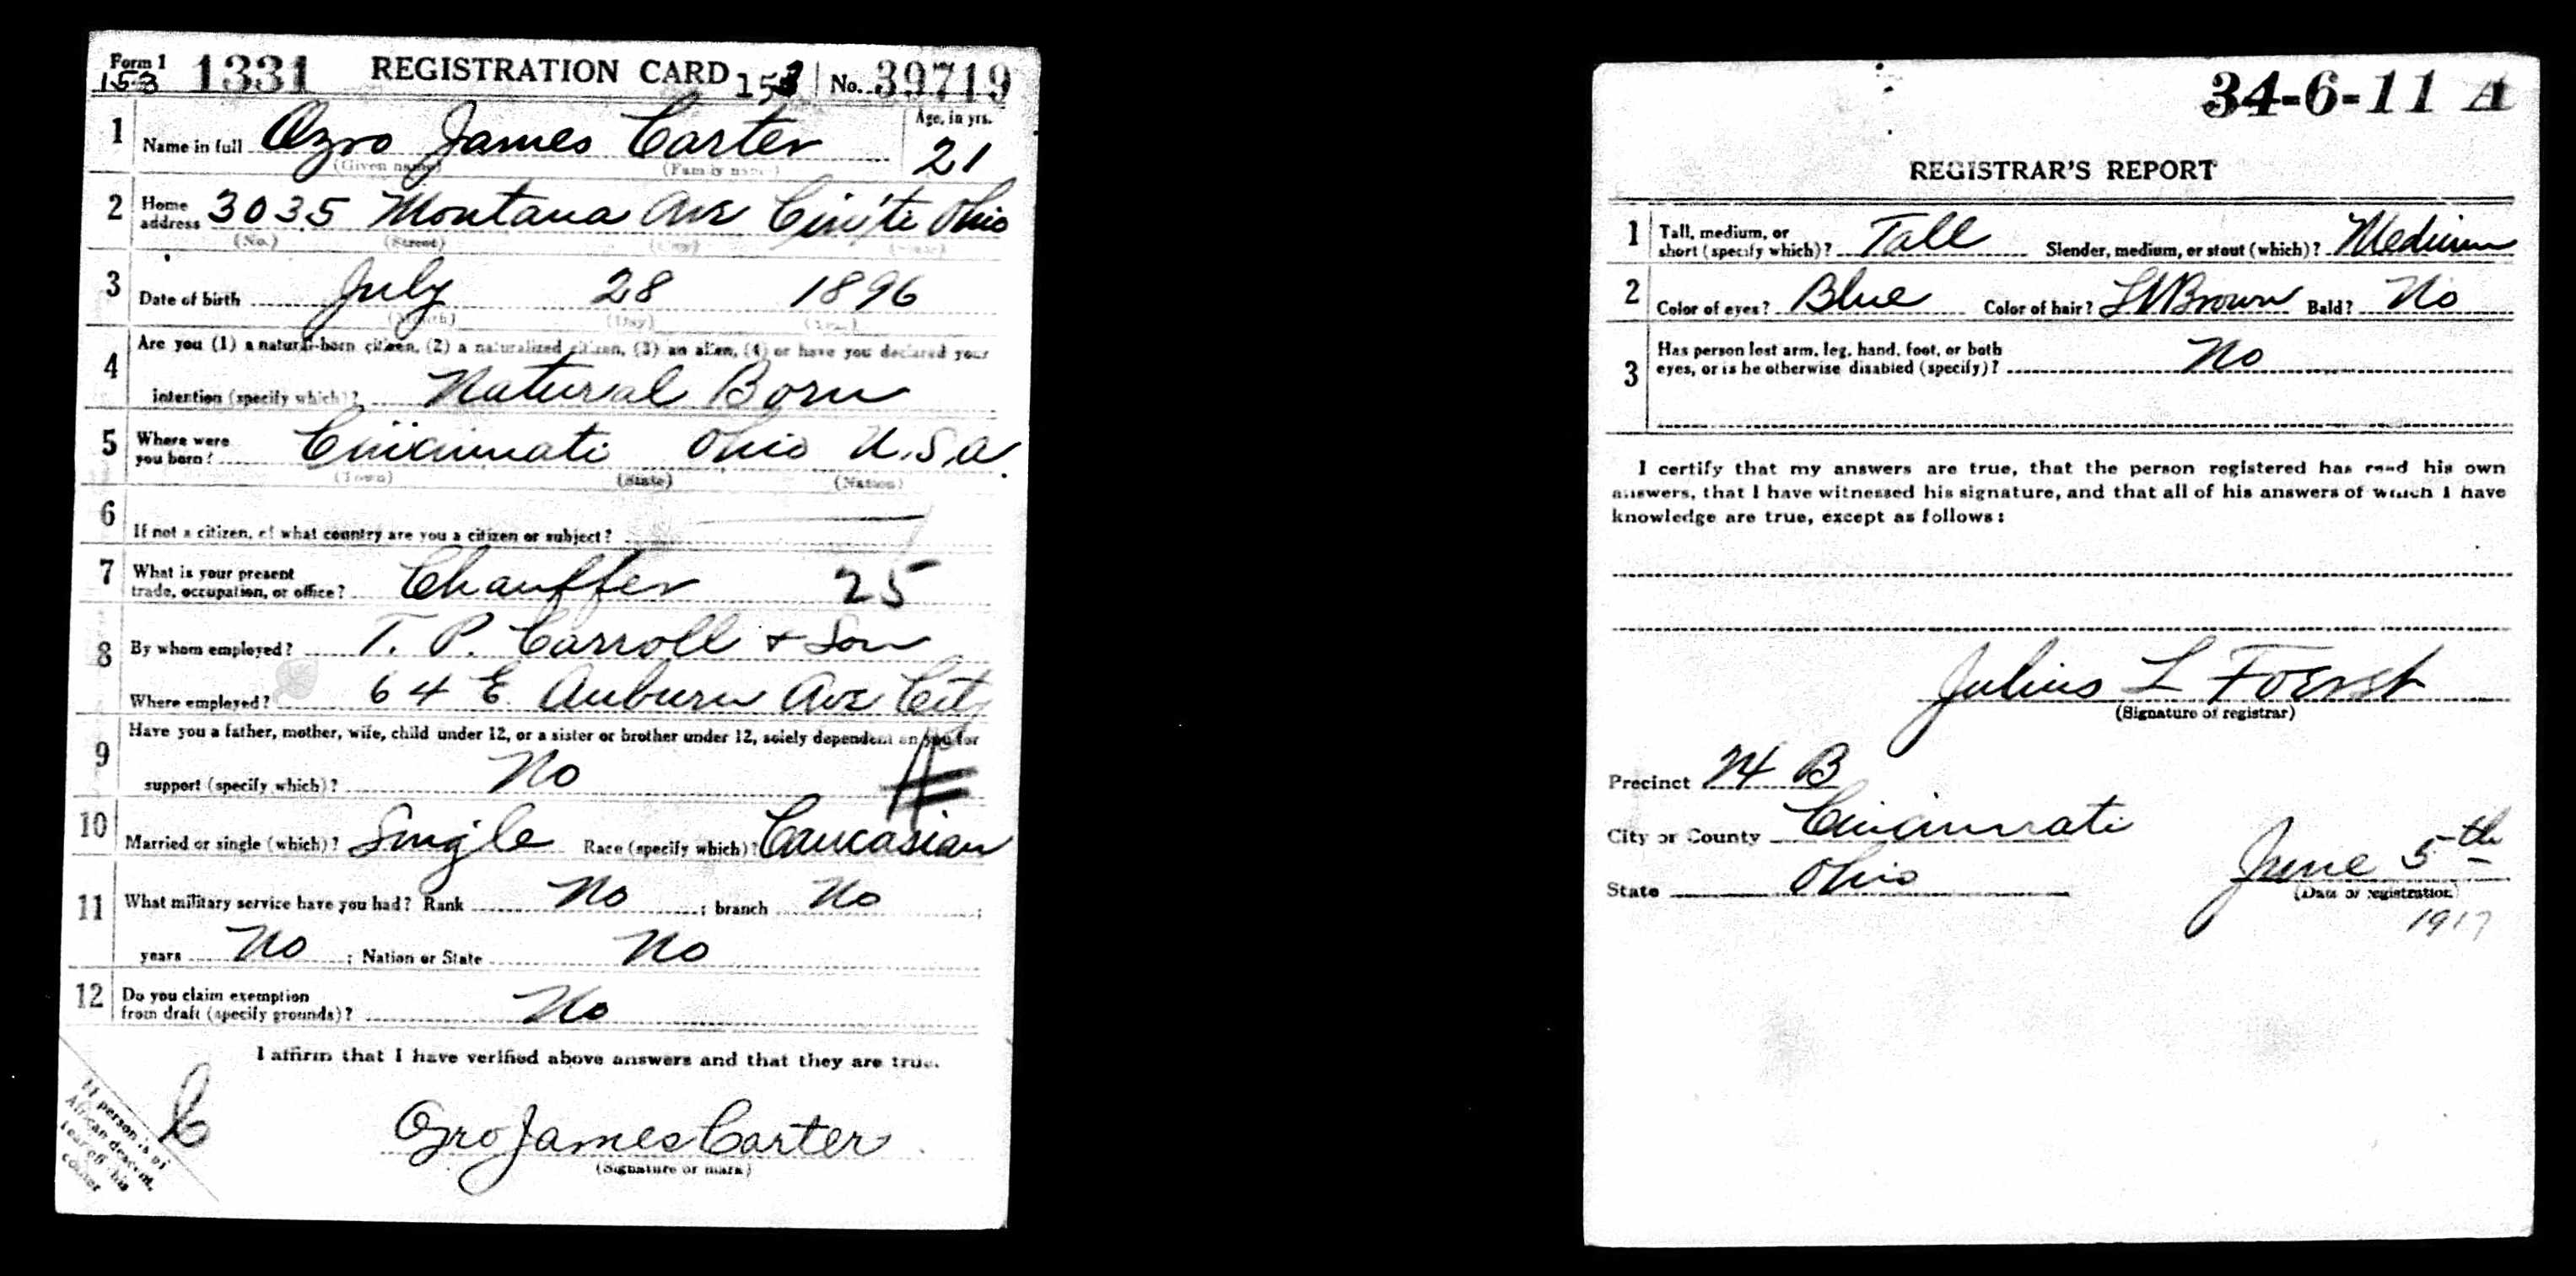 Form 1 1331 REGISTRATION CARD No. 39719
153
1 Name in full Ozro James Carter Age, in yrs.
(Given name) (Family name) 21
2 Home address 3035 Montana Ave Cin'ti Ohio
(No.) (Street) (City) (State)
3 Date of birth July 28 1896
(Month) (Day) (Year)
4 Are you (1) a natural-born citizen, (2) a naturalized citizen, (3) an alien, (4) or have you declared your
intention (specify which)? Natural Born
5 Where were you born? Cincinnati Ohio U.S.A.
(Town) (State) (Nation)
6 If not a citizen, of what country are you a citizen or subject?
7 What is your present
trade, occupation, or office? Chauffer 25
8 By whom employed? T. P. Carroll + Son
Where employed? 64 E Auburn Ave City
9 Have you a father, mother, wife, child under 12, or a sister or brother under 12, solely dependent on you for
support (specify which)? No
10 Married or single (which)? Single Race (specify which)? Caucasian
11 What military service have you had? Rank No ; branch No ;
years No ; Nation or State No
12 Do you claim exemption
from draft (specify grounds)? No
I affirm that I have verified above answers and that they are true.
Ozro James Carter
(Signature or mark)
If person is of
African descent,
tear off this
corner
34-6-11 A
REGISTRAR'S REPORT
1 Tall, medium, or
short (specify which)? Tall Slender, medium, or stout (which)? Medium
2 Color of eyes? Blue Color of hair? Lt Brown Bald? No
3 Has person lost arm, leg, hand, foot, or both
eyes, or is he otherwise disabled (specify)? No
I certify that my answers are true, that the person registered has read his own
answers, that I have witnessed his signature, and that all of his answers of which I have
knowledge are true, except as follows:
Julius L Foerst
(Signature of registrar)
Precinct B
City or County Cincinnati
State Ohio June 5th
(Date of registration)
1917